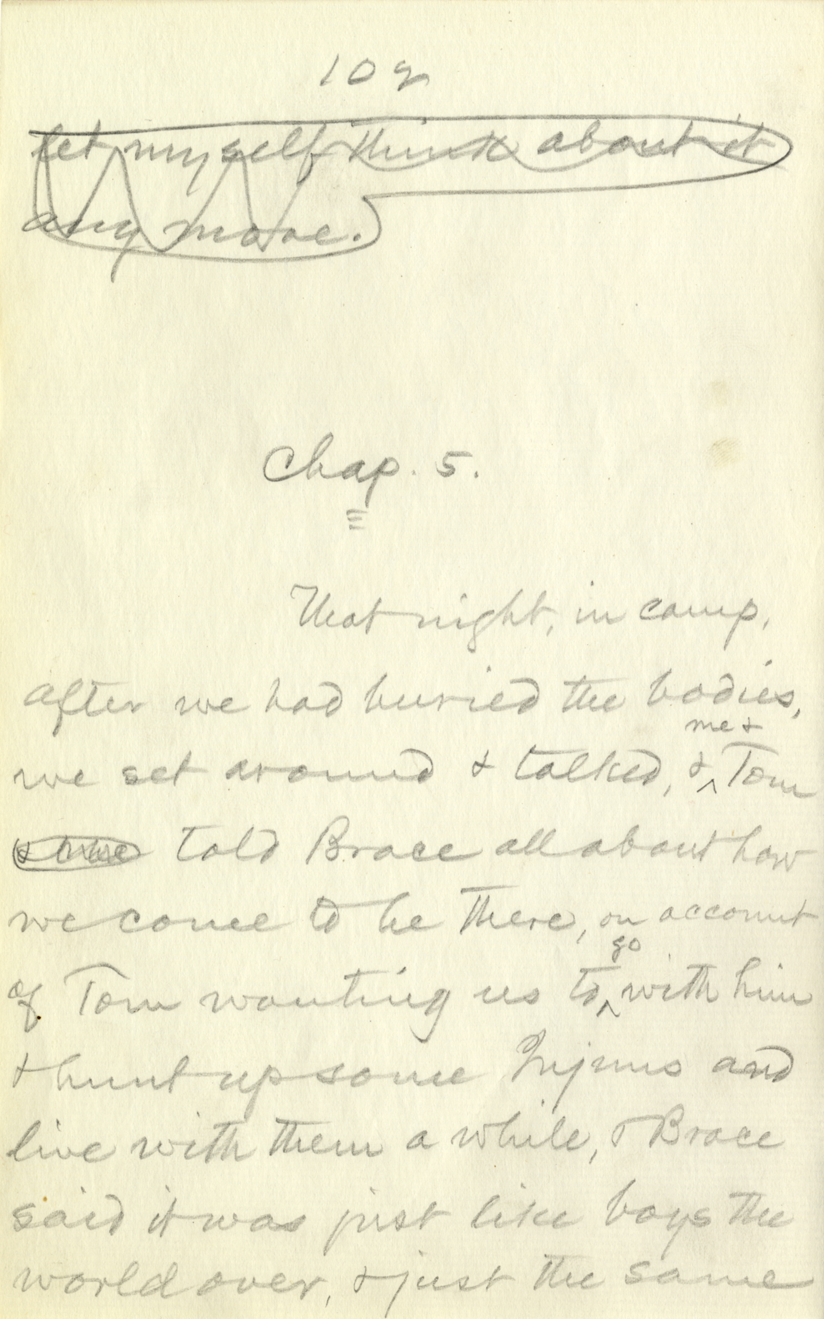 109
let myself think about it
any more.
Chap. 5.
That night, in camp,
after we had buried the bodies,
me &
we set around & talked, & ^ Tom
told Brace all about how
we come to be there, on account
go
of Tom wanting us to ^ with him
& hunt up some Injuns and
live with them a while, & Brace
said it was just like boys the
world over, & just the same